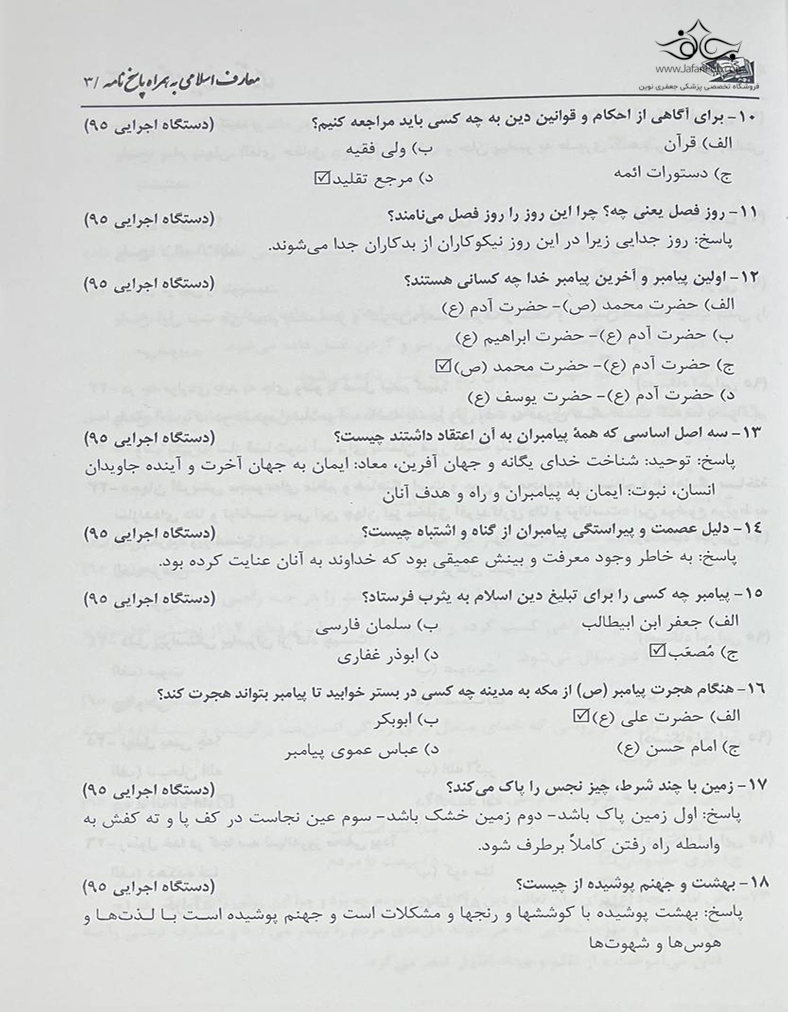 www.Jafari
فروشگاه تخصصی پزشکی جعفری نوین
معارف اسلامی به همراه پاسخ نامه / ۳
۱۰- برای آگاهی از احکام و قوانین دین به چه کسی باید مراجعه کنیم؟ (دستگاه اجرایی ۹۵)
الف) قرآن ب) ولی فقیه
ج) دستورات ائمه د) مرجع تقلید☑
۱۱- روز فصل یعنی چه؟ چرا این روز را روز فصل می‌نامند؟ (دستگاه اجرایی ۹۵)
پاسخ: روز جدایی زیرا در این روز نیکوکاران از بدکاران جدا می‌شوند.
۱۲- اولین پیامبر و آخرین پیامبر خدا چه کسانی هستند؟ (دستگاه اجرایی ۹۵)
الف) حضرت محمد (ص)- حضرت آدم (ع)
ب) حضرت آدم (ع)- حضرت ابراهیم (ع)
ج) حضرت آدم (ع)- حضرت محمد (ص)☑
د) حضرت آدم (ع)- حضرت یوسف (ع)
۱۳- سه اصل اساسی که همۀ پیامبران به آن اعتقاد داشتند چیست؟ (دستگاه اجرایی ۹۵)
پاسخ: توحید: شناخت خدای یگانه و جهان آفرین، معاد: ایمان به جهان آخرت و آینده جاویدان
انسان، نبوت: ایمان به پیامبران و راه و هدف آنان
۱۴- دلیل عصمت و پیراستگی پیامبران از گناه و اشتباه چیست؟ (دستگاه اجرایی ۹۵)
پاسخ: به خاطر وجود معرفت و بینش عمیقی بود که خداوند به آنان عنایت کرده بود.
۱۵- پیامبر چه کسی را برای تبلیغ دین اسلام به یثرب فرستاد؟ (دستگاه اجرایی ۹۵)
الف) جعفر ابن ابیطالب ب) سلمان فارسی
ج) مُصعَب☑ د) ابوذر غفاری
۱۶- هنگام هجرت پیامبر (ص) از مکه به مدینه چه کسی در بستر خوابید تا پیامبر بتواند هجرت کند؟
الف) حضرت علی (ع)☑ ب) ابوبکر
ج) امام حسن (ع) د) عباس عموی پیامبر
۱۷- زمین با چند شرط، چیز نجس را پاک می‌کند؟ (دستگاه اجرایی ۹۵)
پاسخ: اول زمین پاک باشد- دوم زمین خشک باشد- سوم عین نجاست در کف پا و ته کفش به
واسطه راه رفتن کاملاً برطرف شود.
۱۸- بهشت و جهنم پوشیده از چیست؟ (دستگاه اجرایی ۹۵)
پاسخ: بهشت پوشیده با کوششها و رنجها و مشکلات است و جهنم پوشیده است با لذت‌ها و
هوس‌ها و شهوت‌ها